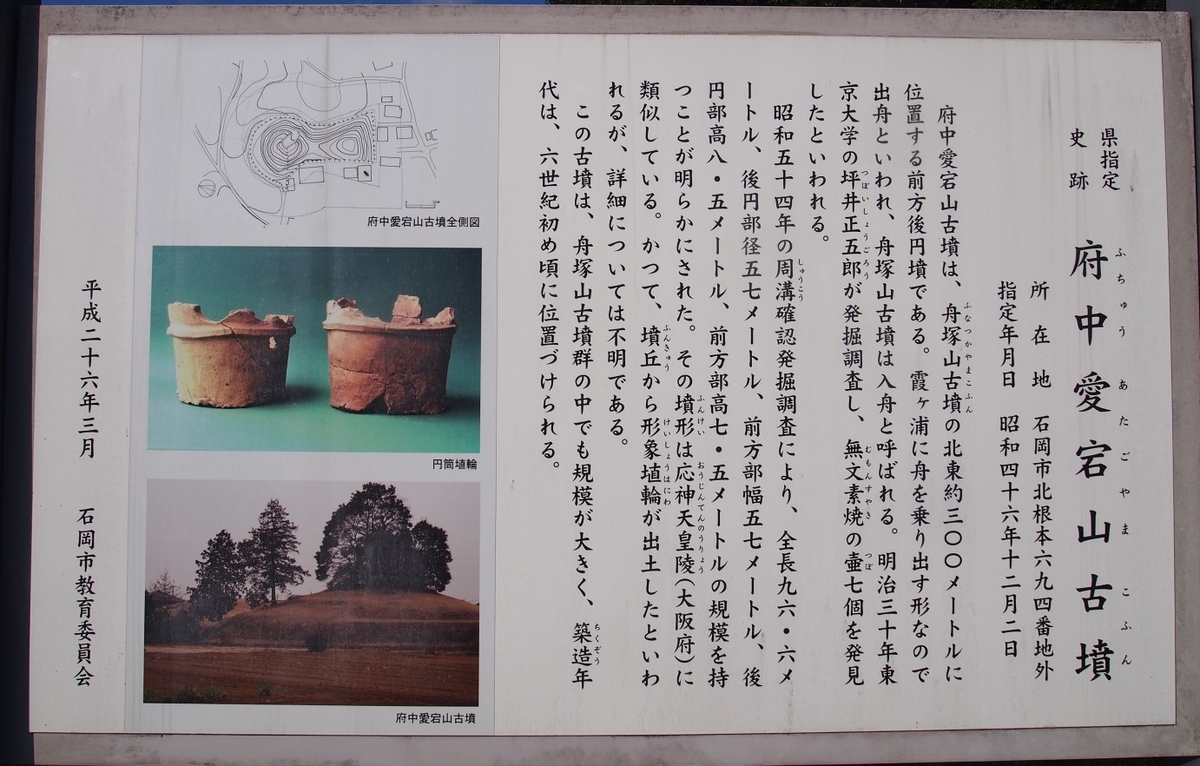 県指定
史跡
府中愛宕山古墳
ふちゅう あたごやま こふん
所在地 石岡市北根本六九四番地外
指定年月日 昭和四十六年十二月二日
府中愛宕山古墳は、舟塚山古墳の北東約三〇〇メートルに
ふなつかやまこふん
位置する前方後円墳である。霞ヶ浦に舟を乗り出す形なので
出舟といわれ、舟塚山古墳は入舟と呼ばれる。明治三十年東
京大学の坪井正五郎が発掘調査し、無文素焼の壷七個を発見
つぼいしょうごろう むもんすやき つぼ
したといわれる。
昭和五十四年の周溝確認発掘調査により、全長九六・六メ
しゅうこう
ートル、後円部径五七メートル、前方部幅五七メートル、後
円部高八・五メートル、前方部高七・五メートルの規模を持
つことが明らかにされた。その墳形は応神天皇陵(大阪府)に
ふんけい おうじんてんのうりょう
類似している。かつて、墳丘から形象埴輪が出土したといわ
ふんきゅう けいしょうはにわ
れるが、詳細については不明である。
この古墳は、舟塚山古墳群の中でも規模が大きく、築造年
ちくぞう
代は、六世紀初め頃に位置づけられる。
府中愛宕山古墳全側図
円筒埴輪
府中愛宕山古墳
平成二十六年三月 石岡市教育委員会